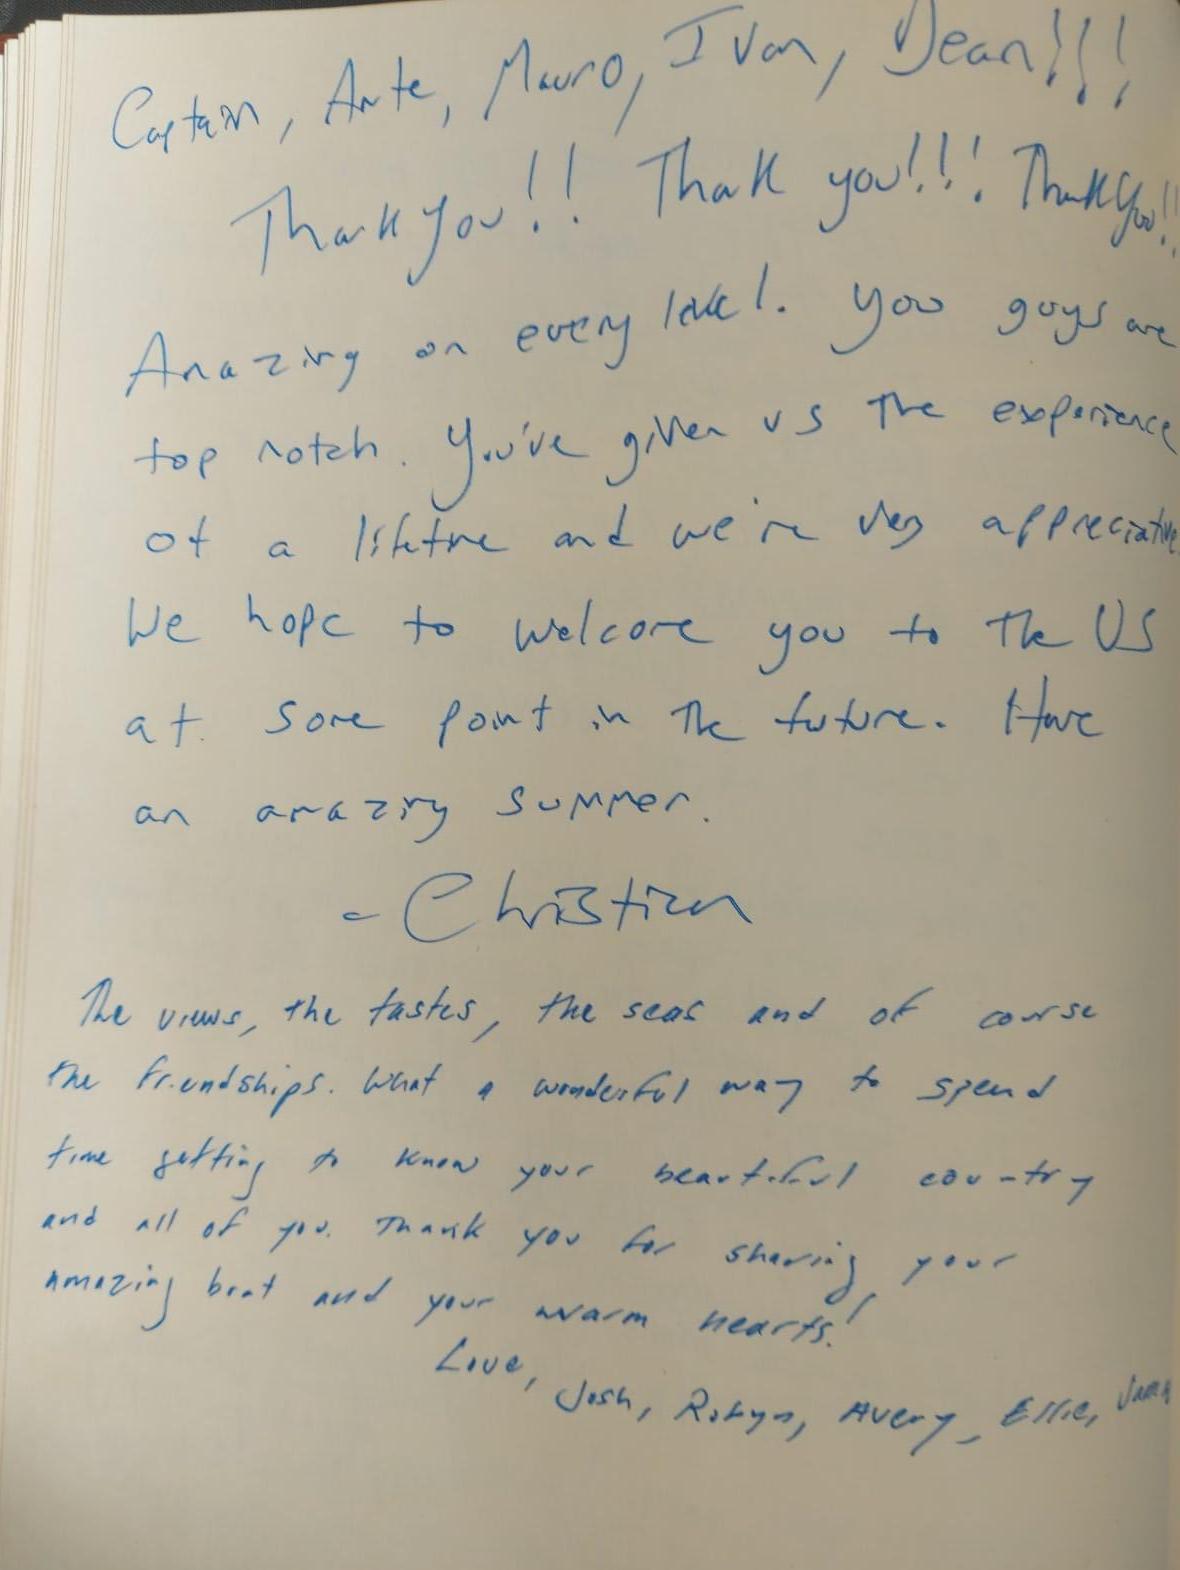 Captain, Ante, Mauro, Ivan, Dean!!!
Thank you!! Thank you!!! Thank you!!
Amazing on every level. You guys are
top notch. You've given us the experience
of a lifetime and we're very appreciative
We hope to welcome you to the US
at some point in the future. Have
an amazing summer.
- Christian
The views, the tastes, the seas and of course
the friendships. What a wonderful way to spend
time getting to know your beautiful country
and all of you. Thank you for sharing your
amazing boat and your warm hearts!
Love,
Josh, Robyn, Avery, Ellie,